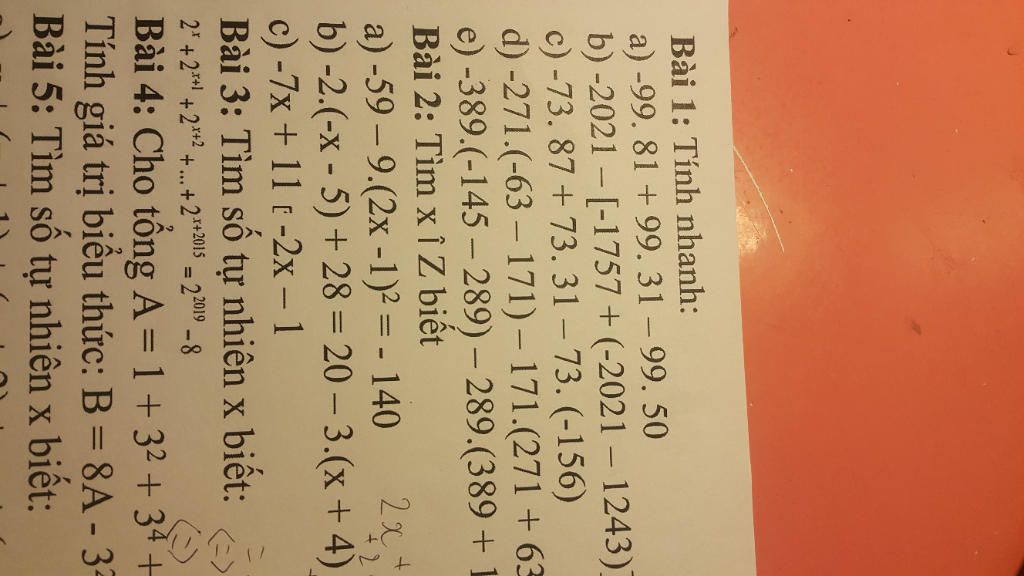 Bài 1: Tính nhanh:
a) -99. 81 + 99. 31 – 99. 50
b) -2021 – [-1757 + (-2021 – 1243)]
c) -73. 87 + 73. 31 – 73. (-156)
d) -271.(-63 – 171) – 171.(271 + 63
e) -389.(-145 – 289) – 289.(389 + 1
Bài 2: Tìm x Î Z biết
a) -59 – 9.(2x -1)² = - 140
b) -2.(-x - 5) + 28 = 20 – 3.(x + 4)
c) -7x + 11 [ -2x – 1
Bài 3: Tìm số tự nhiên x biết:
2ˣ + 2ˣ⁺¹ + 2ˣ⁺² + ... + 2ˣ⁺²⁰¹⁵ = 2²⁰¹⁹ - 8
Bài 4: Cho tổng A = 1 + 3² + 3⁴ +
Tính giá trị biểu thức: B = 8A - 3²
Bài 5: Tìm số tự nhiên x biết: